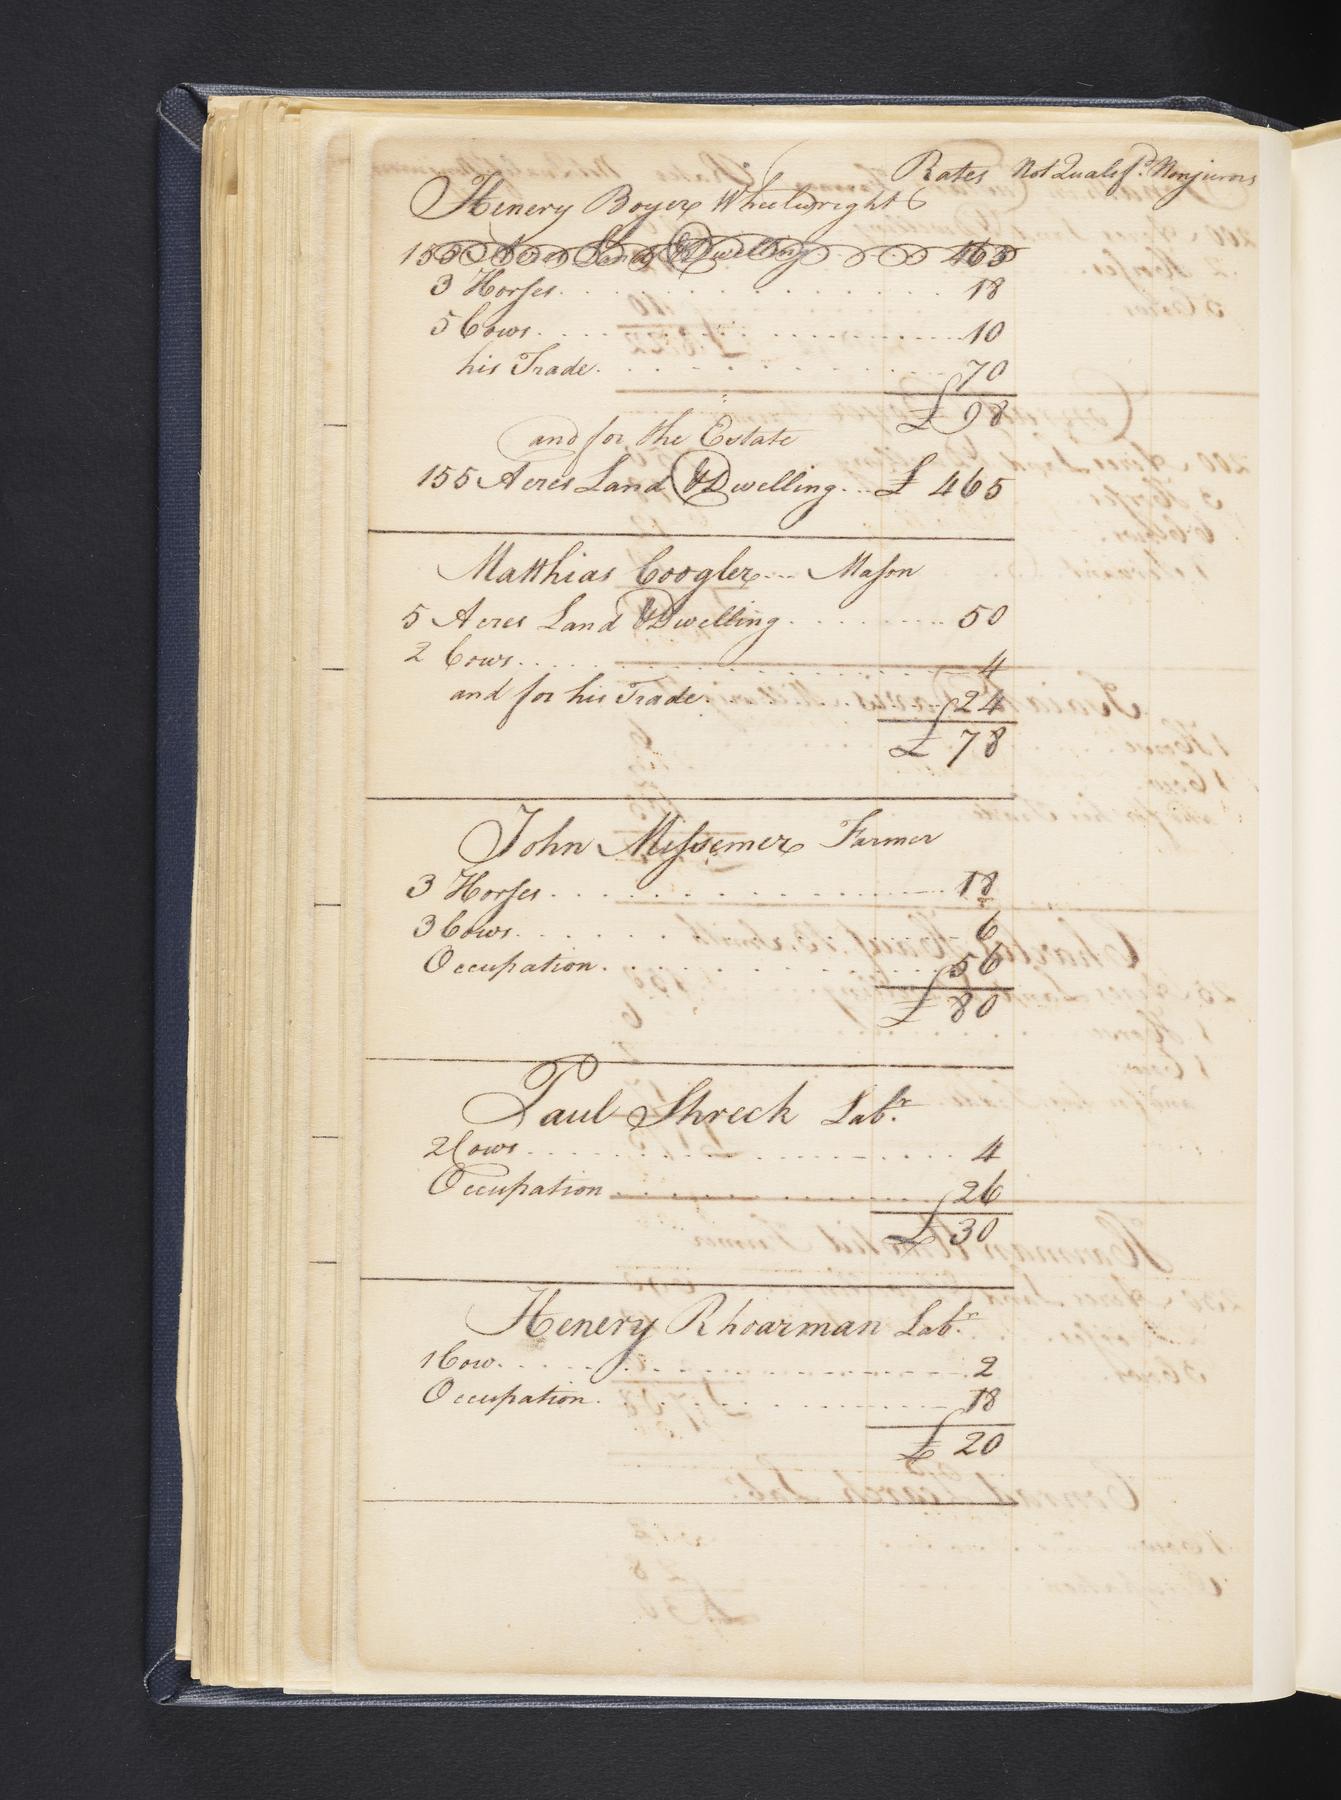 Rates Not Qualif.d Nonjurors
Henery Boyer Wheelwright
155 Acres Land & Dwelling 465
3 Horses 18
5 Cows 10
his Trade 70
£ 98
and for the Estate
155 Acres Land & Dwelling £ 465
Matthias Coogler Mason
5 Acres Land & Dwelling 50
2 Cows 4
and for his Trade 24
£ 78
John Missemer Farmer
3 Horses 18
3 Cows 6
Occupation 56
£ 80
Paul Shreck Lab.r
2 Cows 4
Occupation 26
£ 30
Henery Rhoarman Lab.r
1 Cow 2
Occupation 18
£ 20